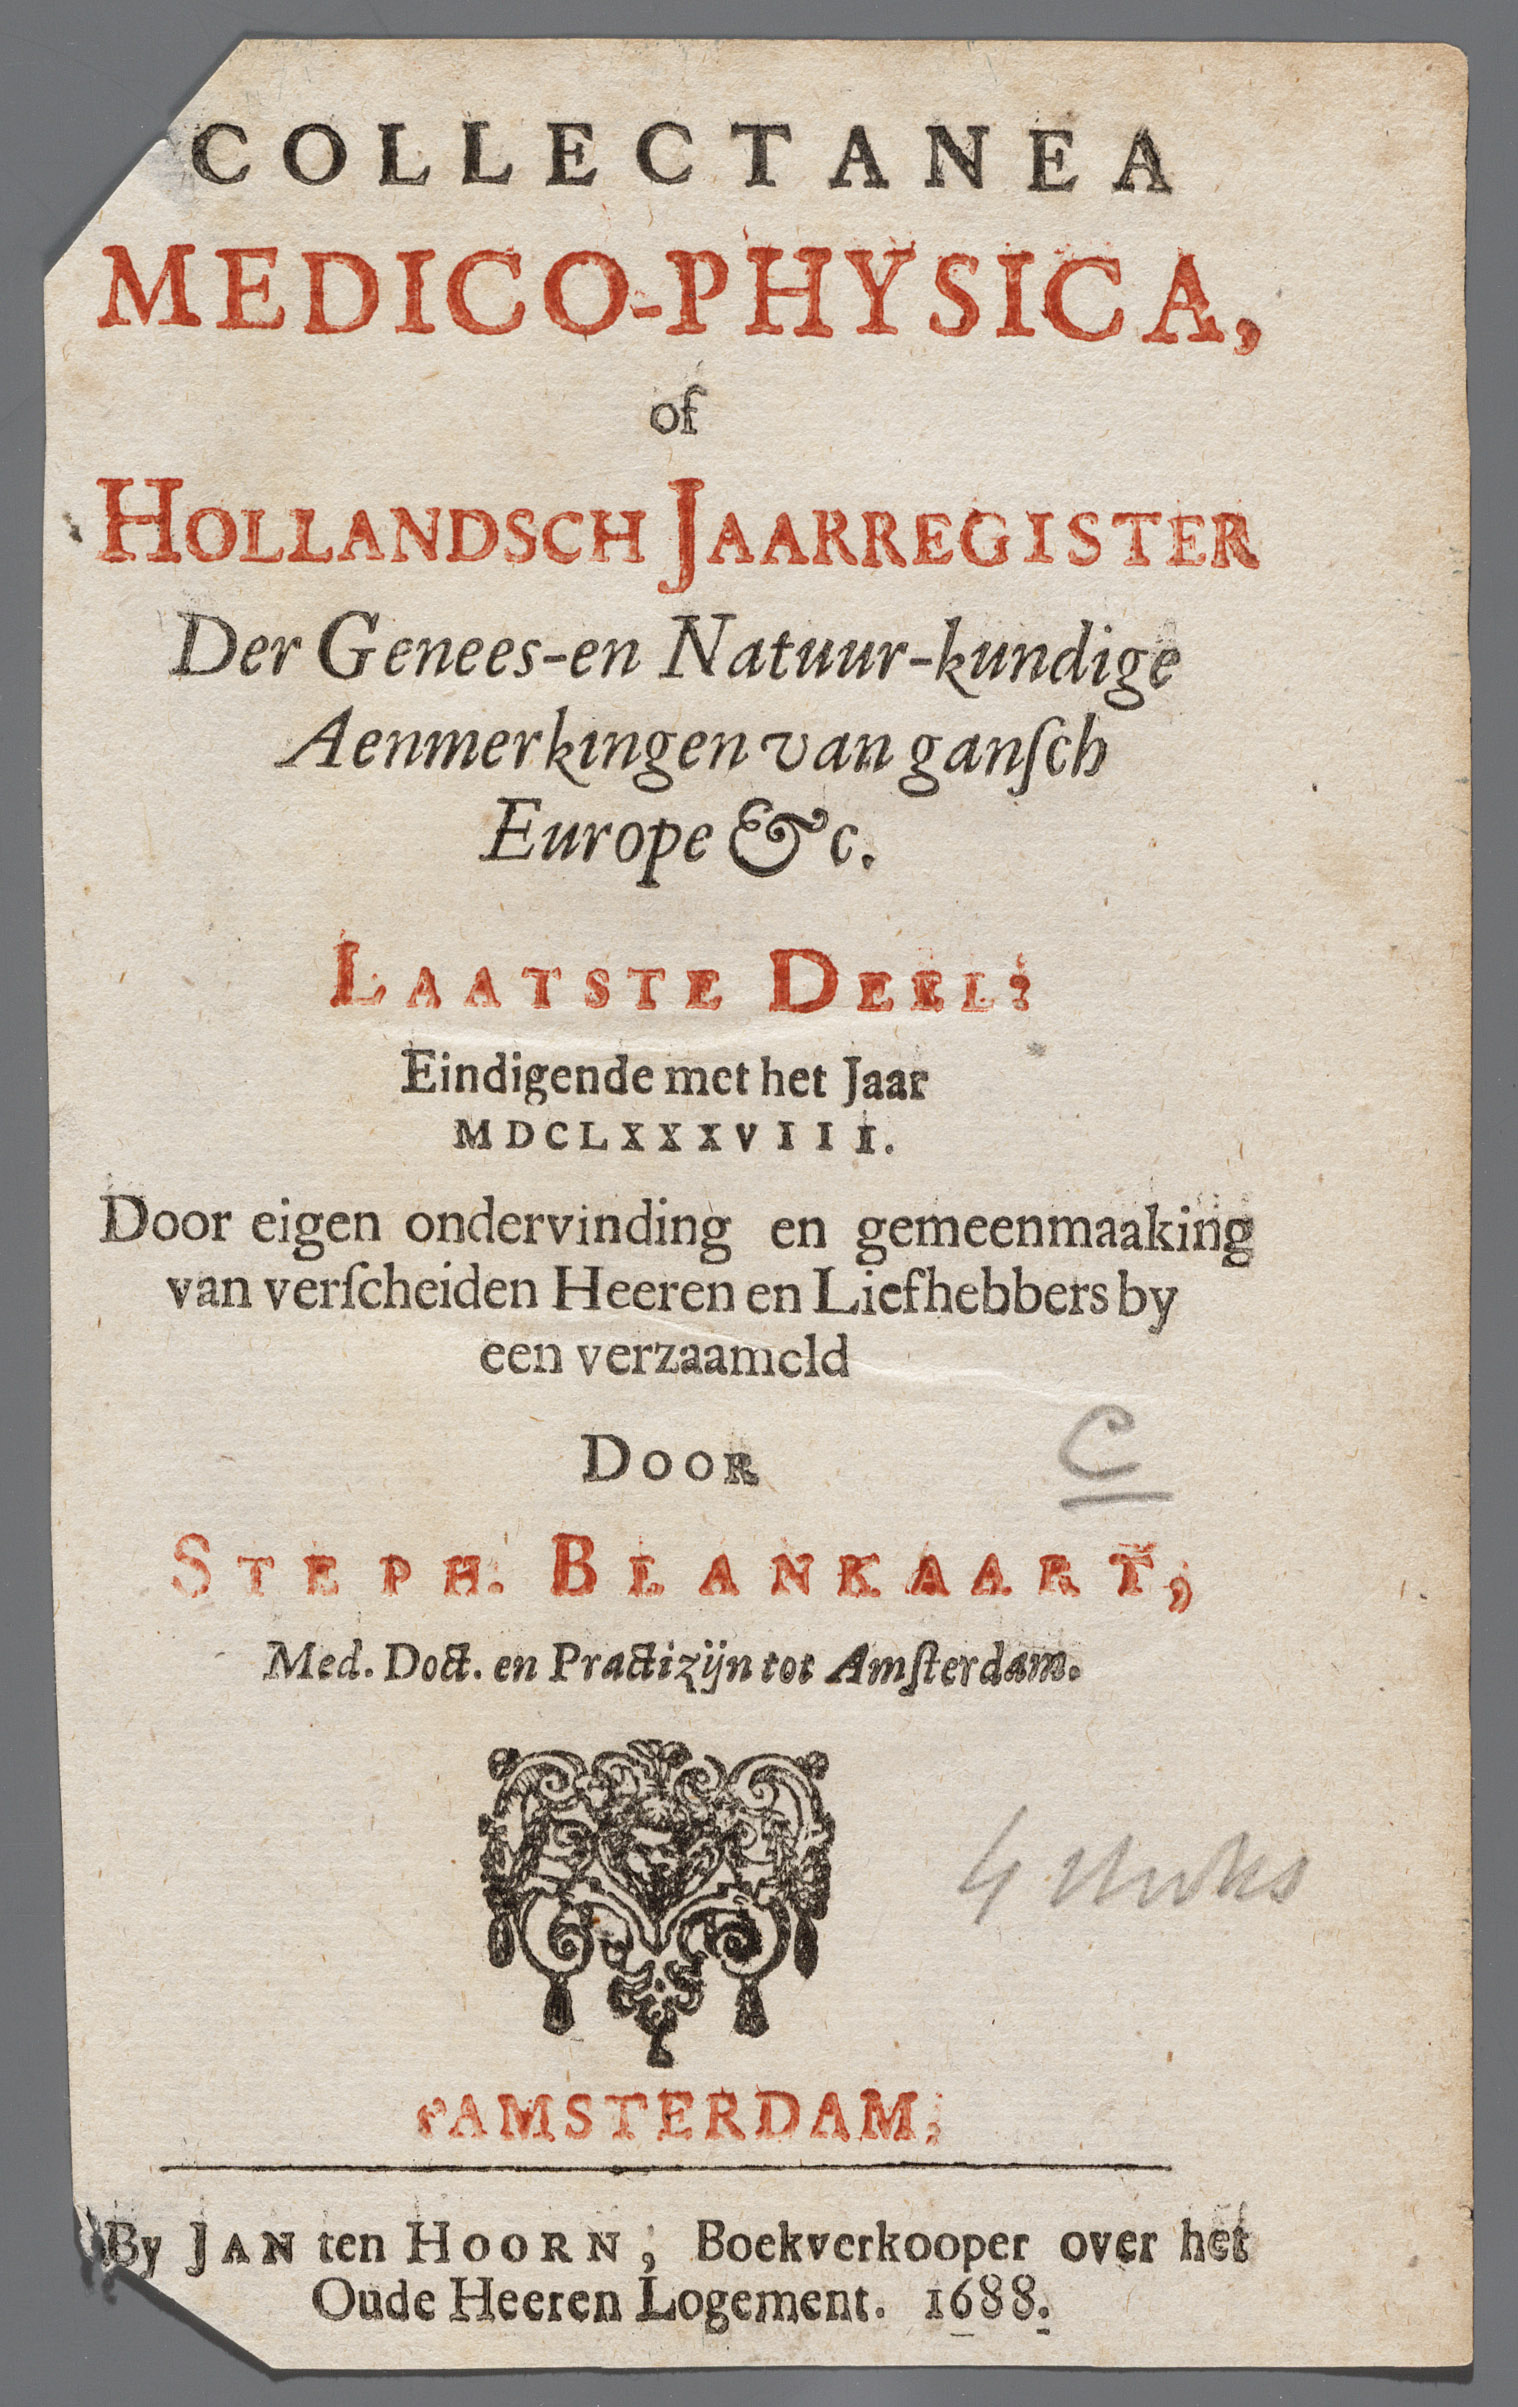 COLLECTANEA
MEDICO-PHYSICA,
of
HOLLANDSCH JAARREGISTER
Der Genees-en Natuur-kundige
Aenmerkingen van ganſch
Europe &c.
LAATSTE DEEL:
Eindigende met het Jaar
MDCLXXXVIII.
Door eigen ondervinding en gemeenmaaking
van verſcheiden Heeren en Liefhebbers by
een verzaameld
DOOR
C
STEPH. BLANKAART,
Med. Doct. en Practizijn tot Amſterdam.
t'AMSTERDAM,
By JAN ten HOORN, Boekverkooper over het
Oude Heeren Logement. 1688.